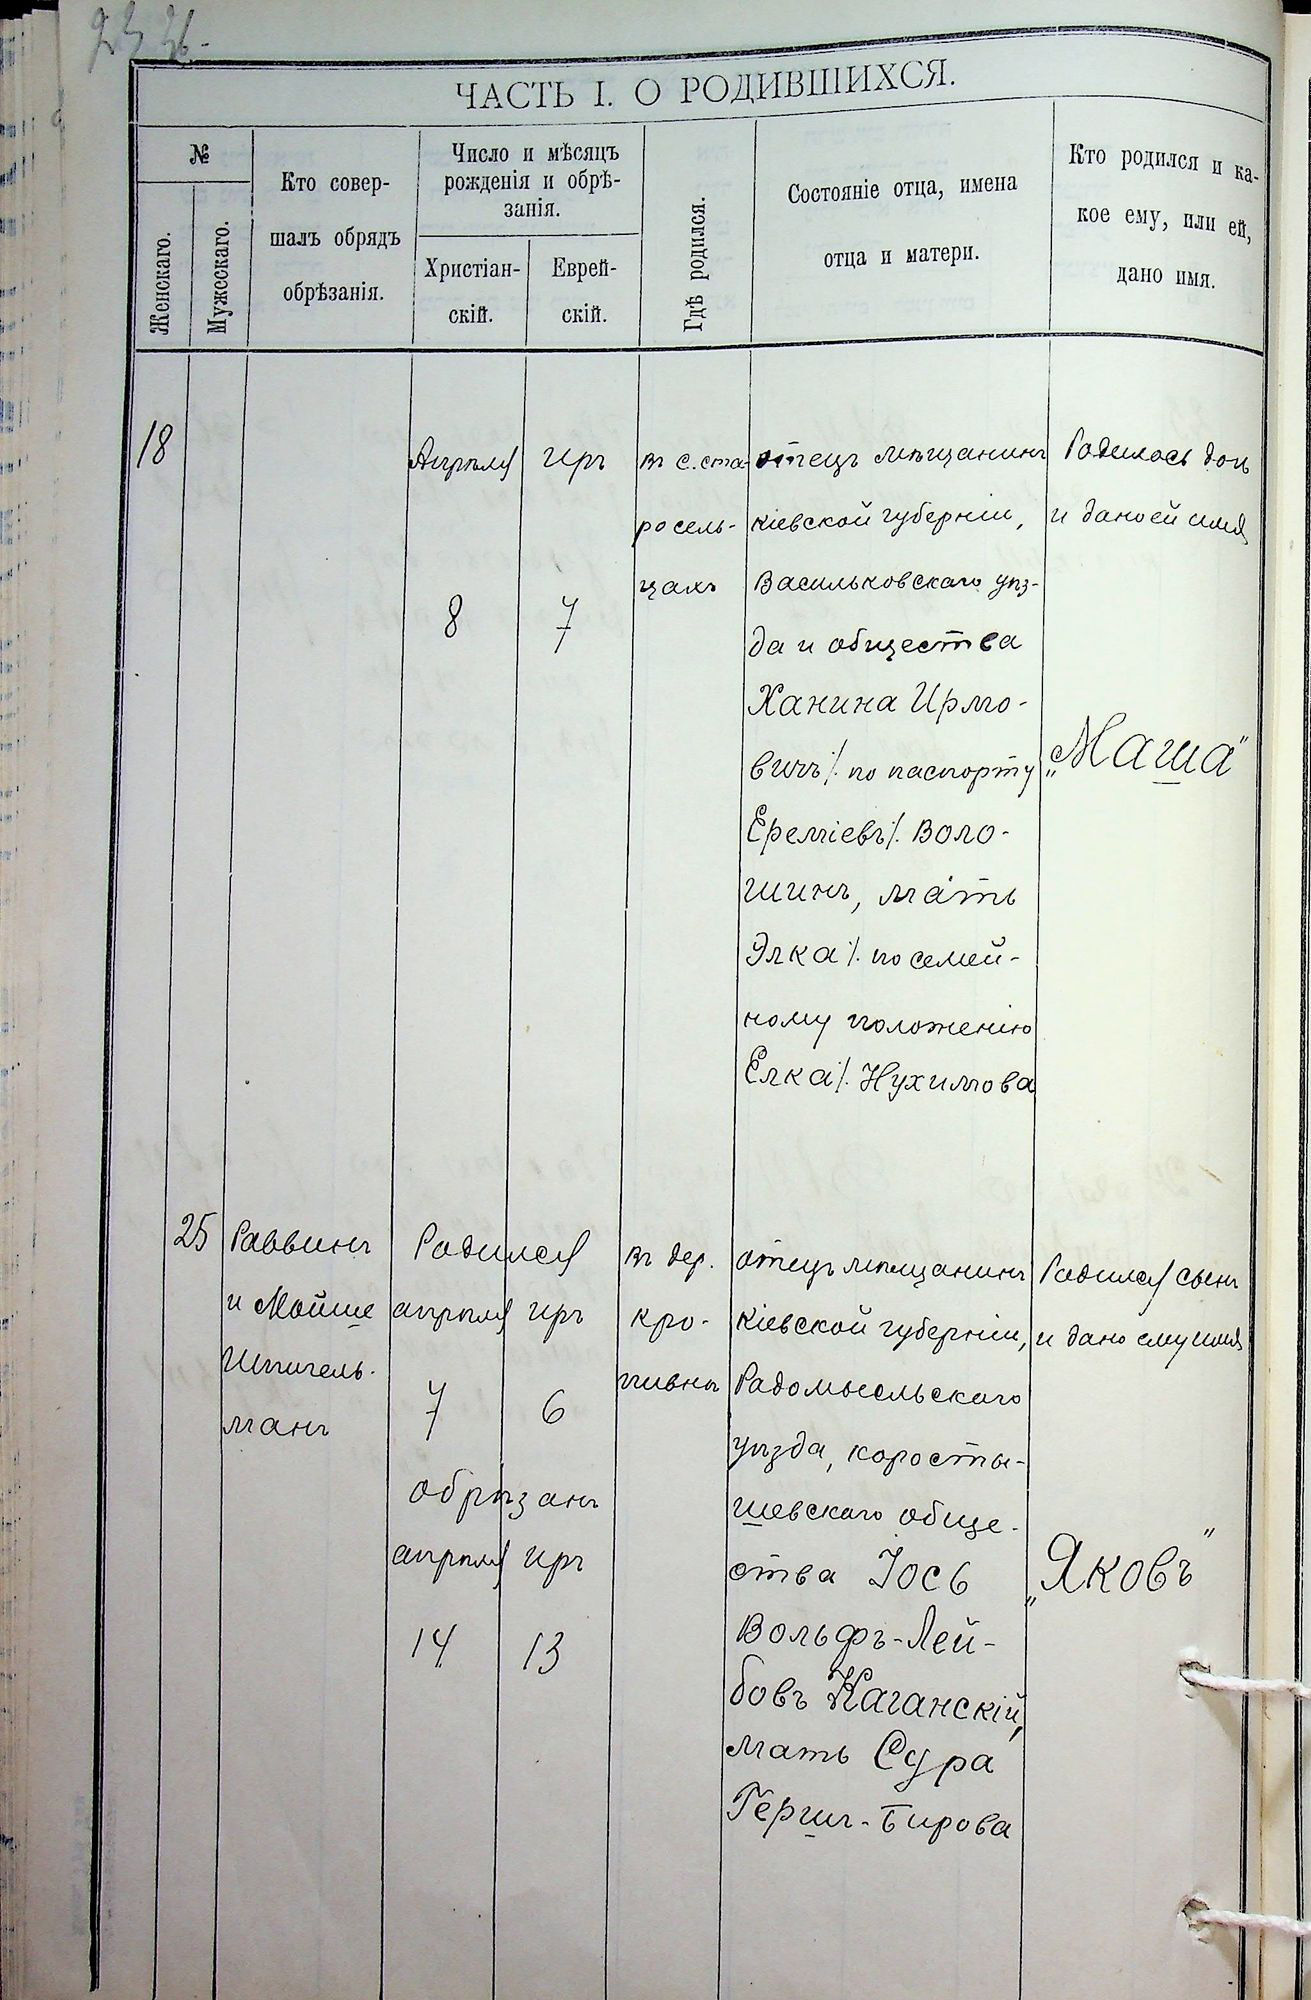 ЧАСТЬ I. О РОДИВШИХСЯ.
№
Женскаго.
Мужескаго.
Кто совер-
шалъ обрядъ
обрѣзанія.
Число и мѣсяцъ
рожденія и обрѣ-
занія.
Христіан-
скій.
Еврей-
скій.
Гдѣ родился.
Состояніе отца, имена
отца и матери.
Кто родился и ка-
кое ему, или ей,
дано имя.
18
Апрѣля
8
Иръ
7
въ с. ста-
росель-
цахъ
отецъ мѣщанинъ
кіевской губерніи,
Васильковскаго уѣз-
да и общества
Ханина Ирмо-
вичъ /. по паспорту
Ереміевъ /. Воло-
шинъ, мать
Элка /. по семей-
ному положенію
Елка /. Нухимова
Родилась дочь
и дано ей имя
„Маша"
25
Раввинъ
и Мойше
Шпигель-
манъ
Родился
апрѣля иръ
7 6
обрѣзанъ
апрѣля иръ
14 13
въ дер.
кро-
пивнѣ
отецъ мѣщанинъ
кіевской губерніи,
Радомысльскаго
уѣзда, коросты-
шевскаго обще-
ства Іось
Вольфъ-Лей-
бовъ Каганскій,
мать Сура
Герш-Берова
Родился сынъ
и дано ему имя
„Яковъ"